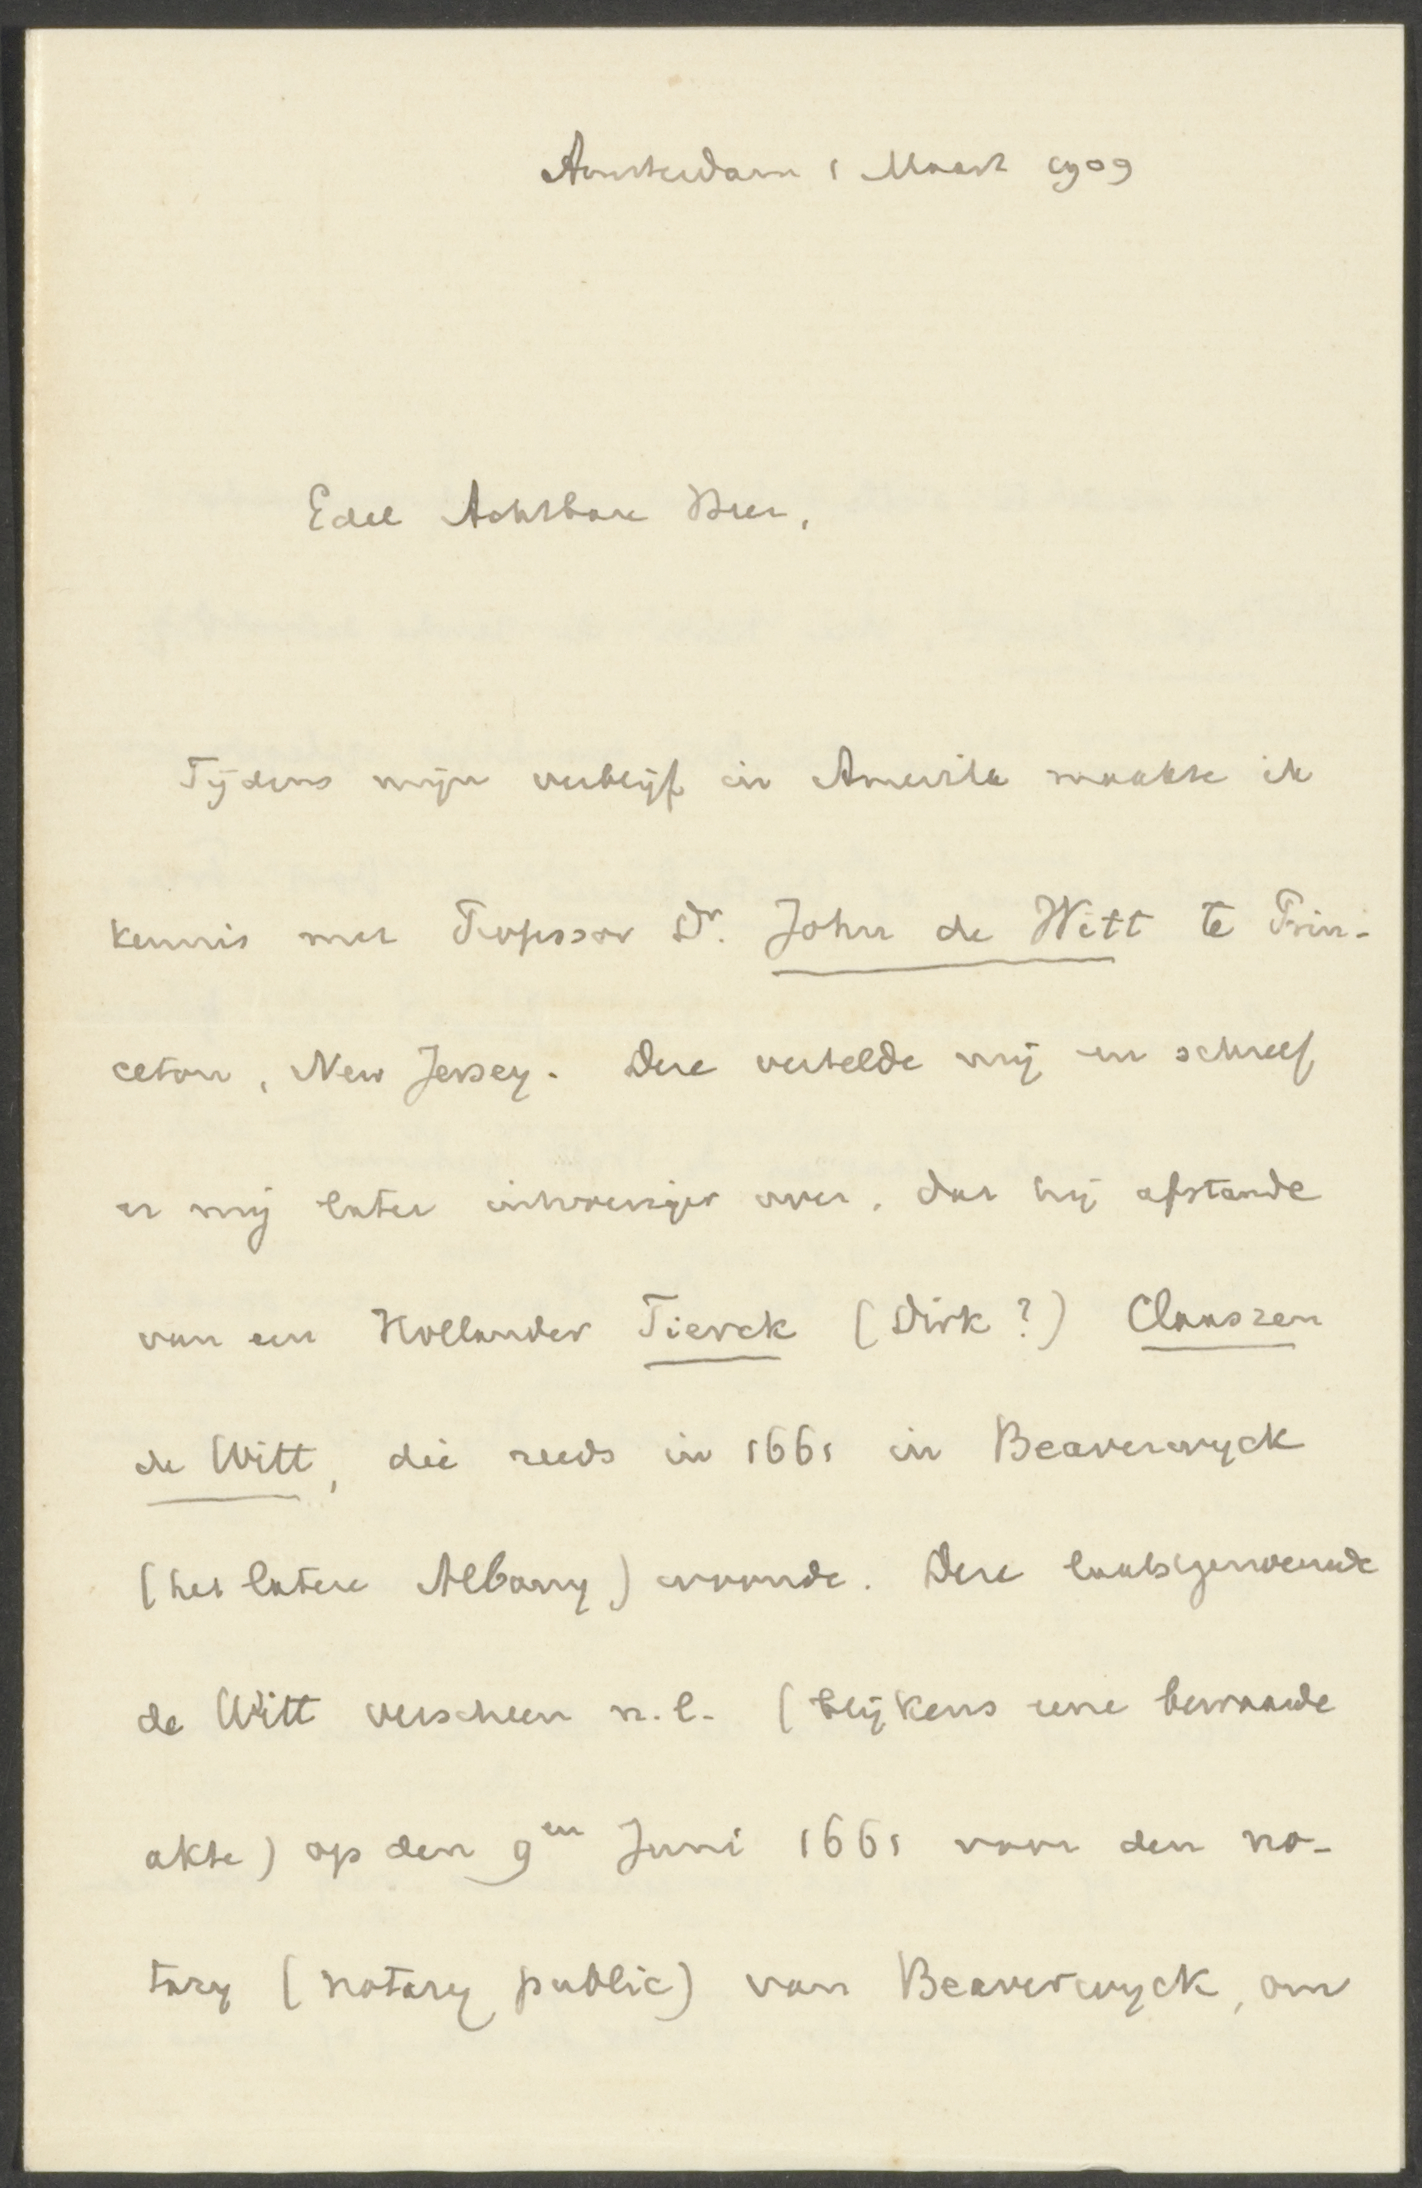 Amsterdam 1 Maart 1909
Edel Achtbare Heer,
Tijdens mijn verblijf in Amerika maakte ik
kennis met Professor Dr. John de Witt te Prin-
ceton, New Jersey. Deze vertelde mij en schreef
er mij later uitvoeriger over, dat hij afstamde
van een Hollander Tierck (Dirk?) Claaszen
de Witt, die reeds in 1661 in Beaverwyck
(het latere Albany) woonde. Deze laatstgenoemde
de Witt verscheen n.l. (blijkens eene bewaarde
akte) op den 9en Juni 1661 voor den no-
tary (notary public) van Beaverwyck, om